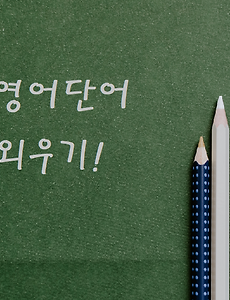 영어단어
외우기!